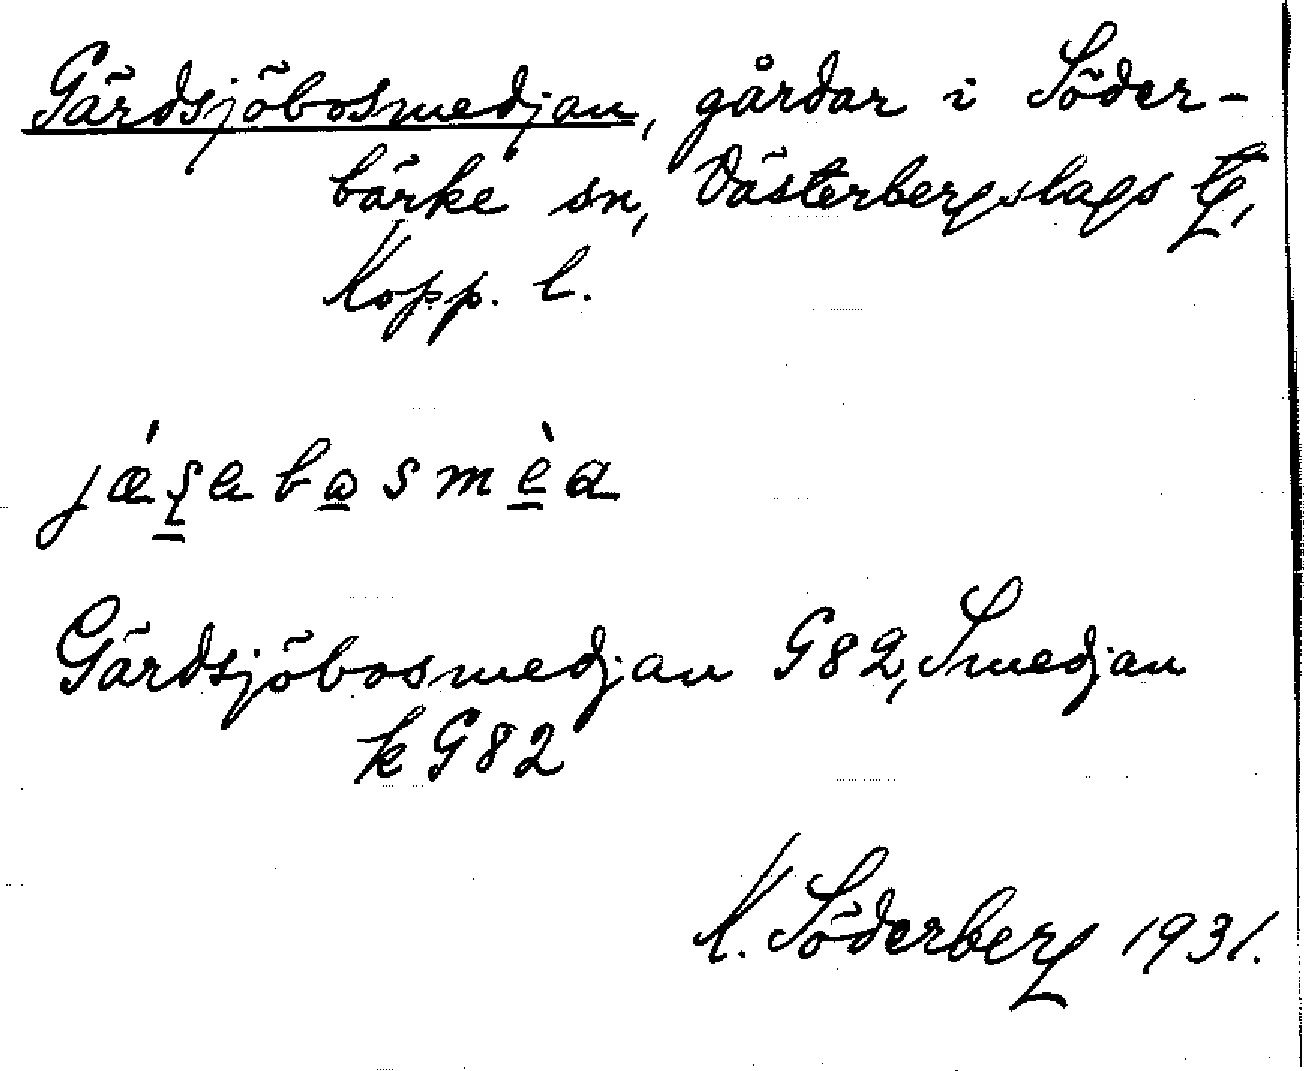 Gärdsjöbosmedjan, gårdar i Söder-
bärke sn, Västerbergslags tg,
Kopp. l.
Gärdsjöbosmedjan G82, Smedjan
k G82
K. Söderberg 1931.